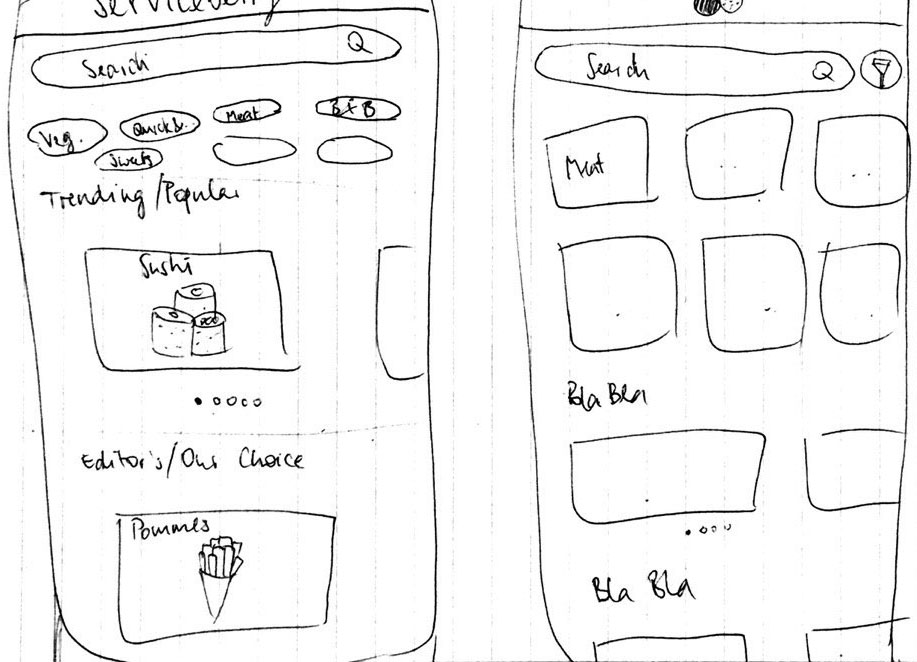 Search
Veg.
Quick&..
Meat
B+B
Sweets
Trending/Popular
Sushi
Editor's/Our Choice
Pommes
Search
Meat
..
..
Bla Bla
Bla Bla